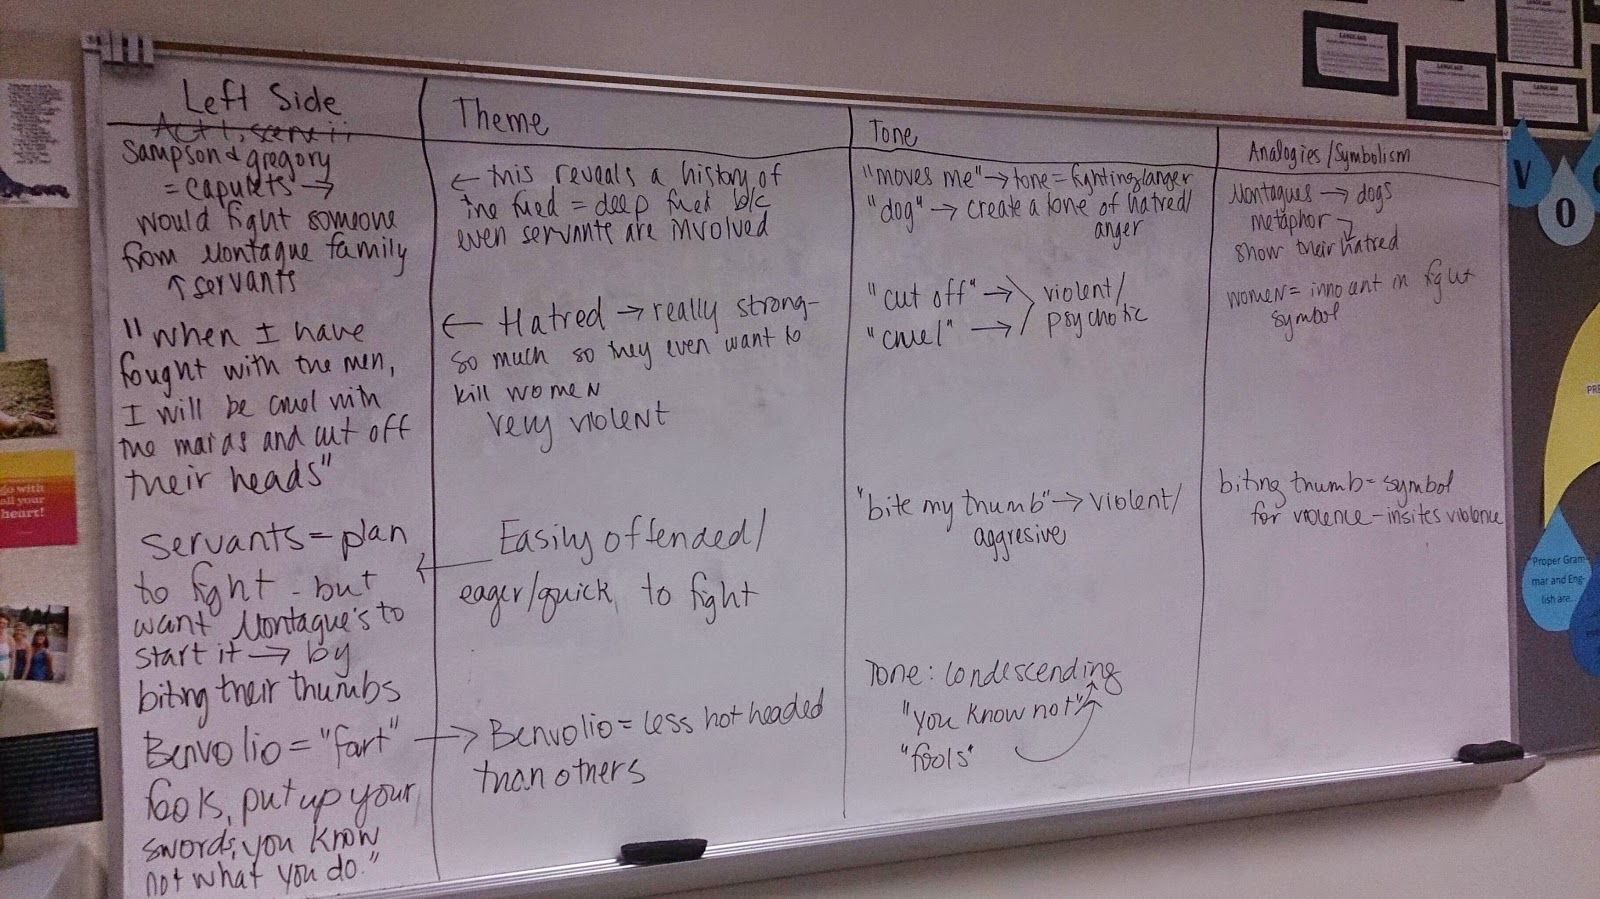 Left Side
Act 1, scene ii,
Sampson & gregory
= Capulets →
would fight someone
from Montague family
↑ servants
"When I have
fought with the men,
I will be cruel with
the maids and cut off
their heads"
servants = plan
to fight - but
want Montague's to
start it → by
biting their thumbs
Benvolio = "fart"
fools, put up your
swords; you know
not what you do."
Theme
← this reveals a history of
the fued = deep fued b/c
even servants are involved
← Hatred → really strong-
so much so they even want to
kill women
very violent
Easily offended/
eager/quick to fight
→ Benvolio = less hot headed
than others
Tone
"moves me" → tone = fighting/anger
"dog" → create a tone of hatred/
anger
"cut off" →
"cruel" →
violent/
psychotic
"bite my thumb" → violent/
aggresive
Tone: condescending
"you know not"
"fools"
Analogies/Symbolism
Montagues → dogs
metaphor →
show their hatred
women = innocent in fight
symbol
biting thumb = symbol
for violence - insites violence
go with
all your
heart!
LANGUAGE
LANGUAGE
LANGUAGE
LANGUAGE
V
O
"Proper Gram-
mar and Eng-
lish are...